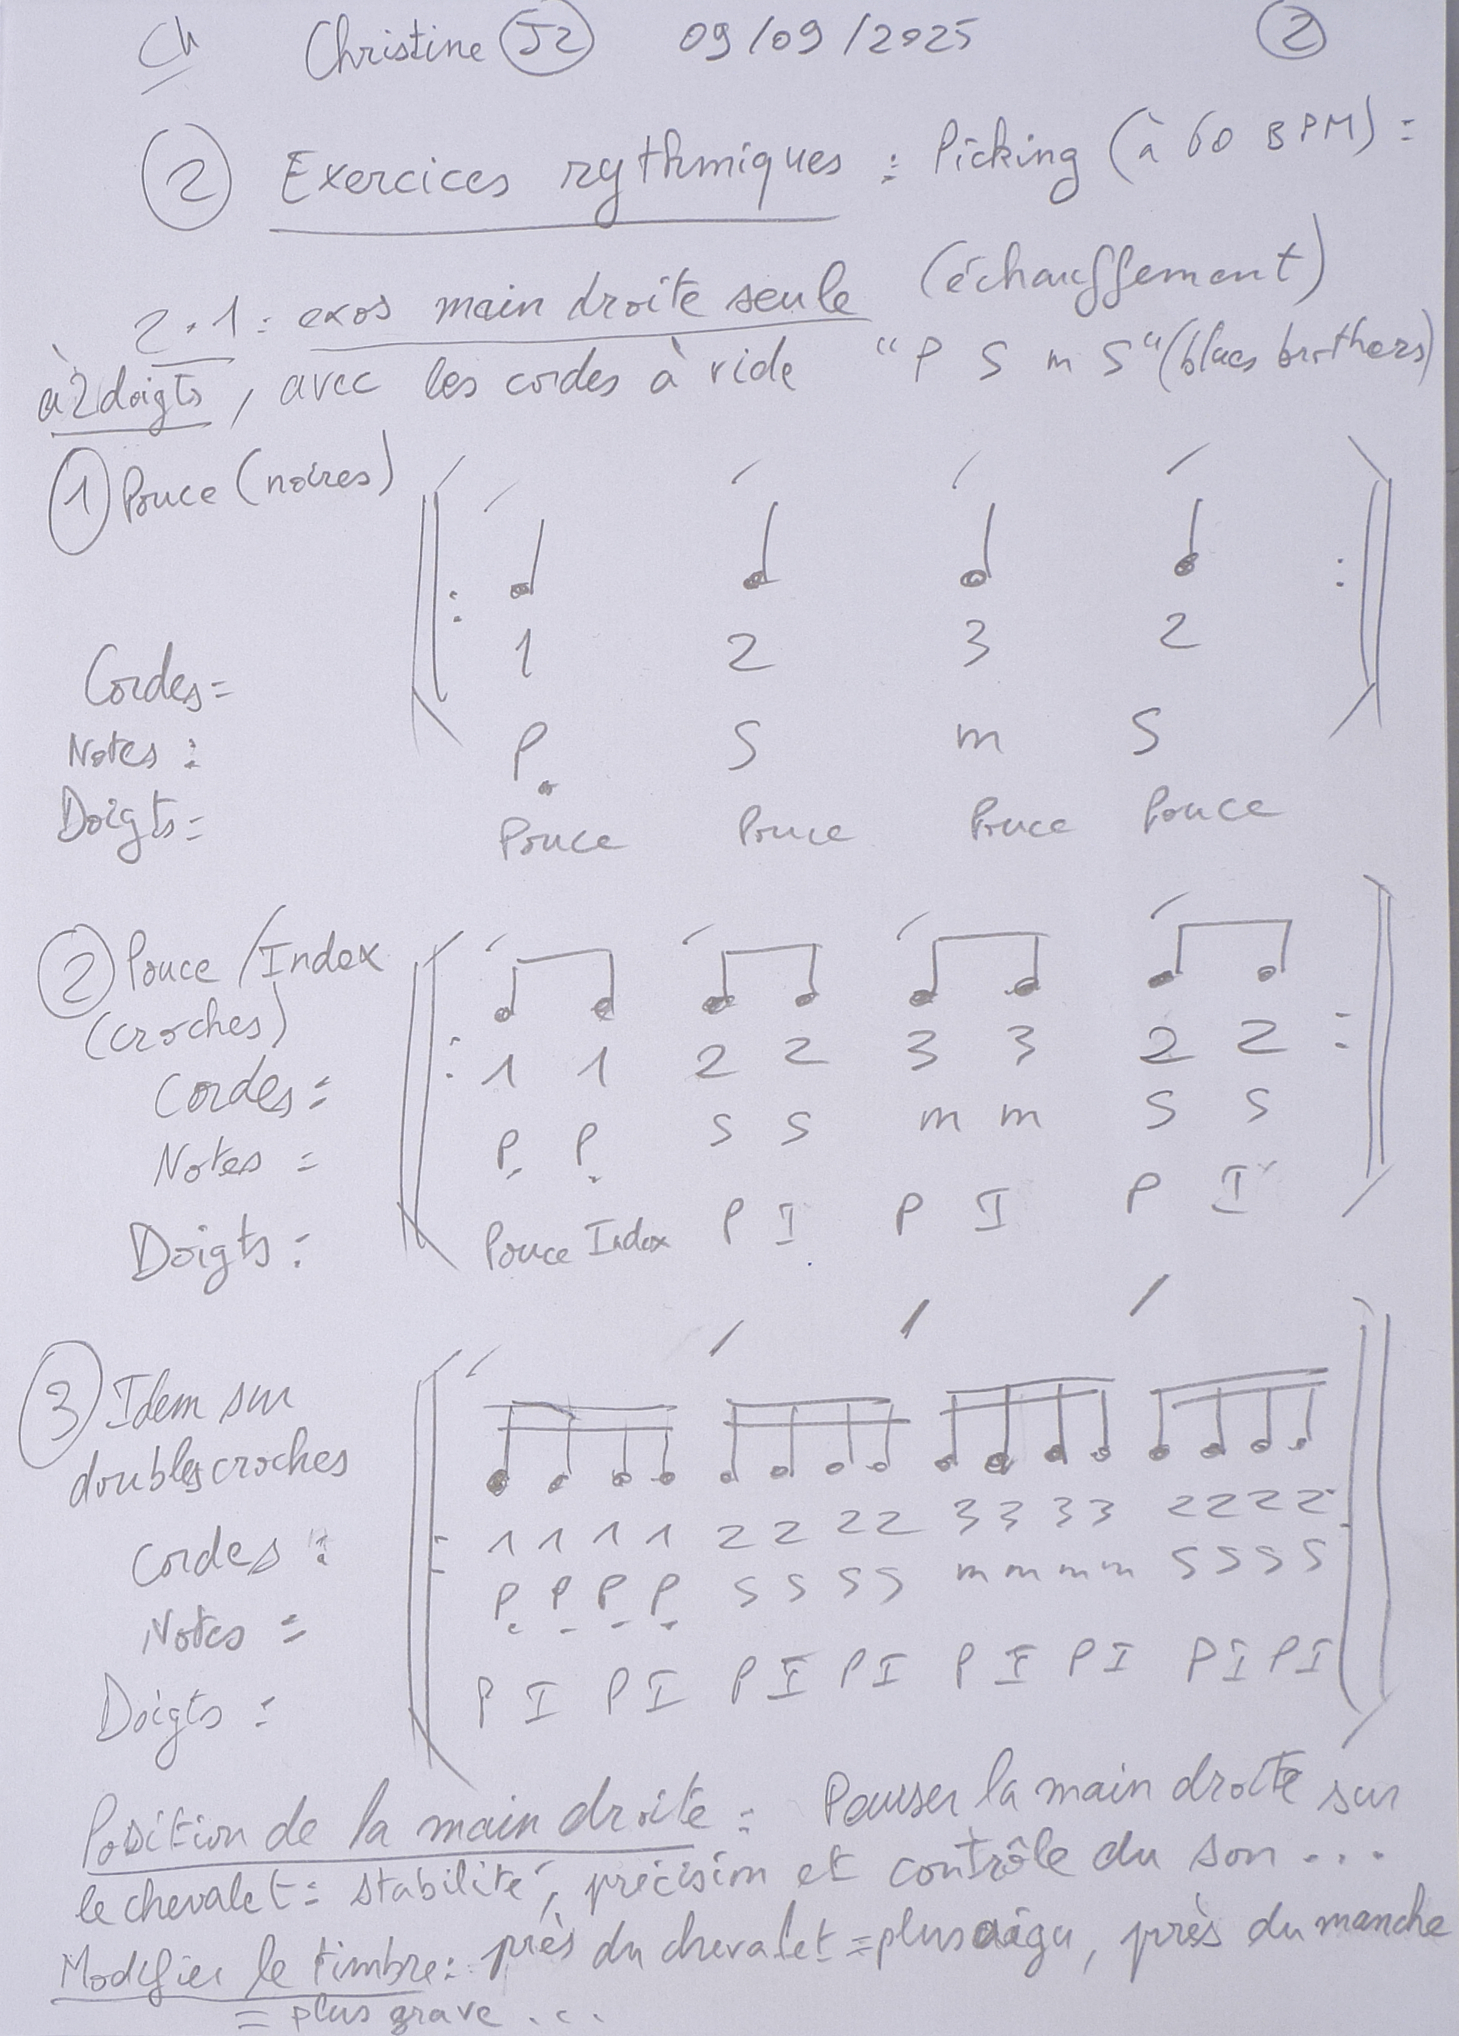 Ch Christine J2 09/09/2025 2
2 Exercices rythmiques : Picking (à 60 BPM) :
2.1 : exos main droite seule (échauffement)
à 2 doigts, avec les cordes à vide "P S m S" (blues brothers)
1 Pouce (noires)
Cordes = 1 2 3 2
Notes : P. S m S
Doigts = Pouce Pouce Pouce Pouce
2 Pouce / Index
(croches)
Cordes = 1 1 2 2 3 3 2 2
Notes = P. P. S S m m S S
Doigts : Pouce Index P I P I P I
3 Idem sur
doubles croches
Cordes : 1 1 1 1 2 2 2 2 3 3 3 3 2 2 2 2
Notes = P. P. P. P. S S S S m m m m S S S S
Doigts : P I P I P I P I P I P I P I P I
Position de la main droite : Pauser la main droite sur
le chevalet = stabilité, précision et contrôle du son ...
Modifier le timbre : près du chevalet = plus aigu, près du manche
= plus grave ...